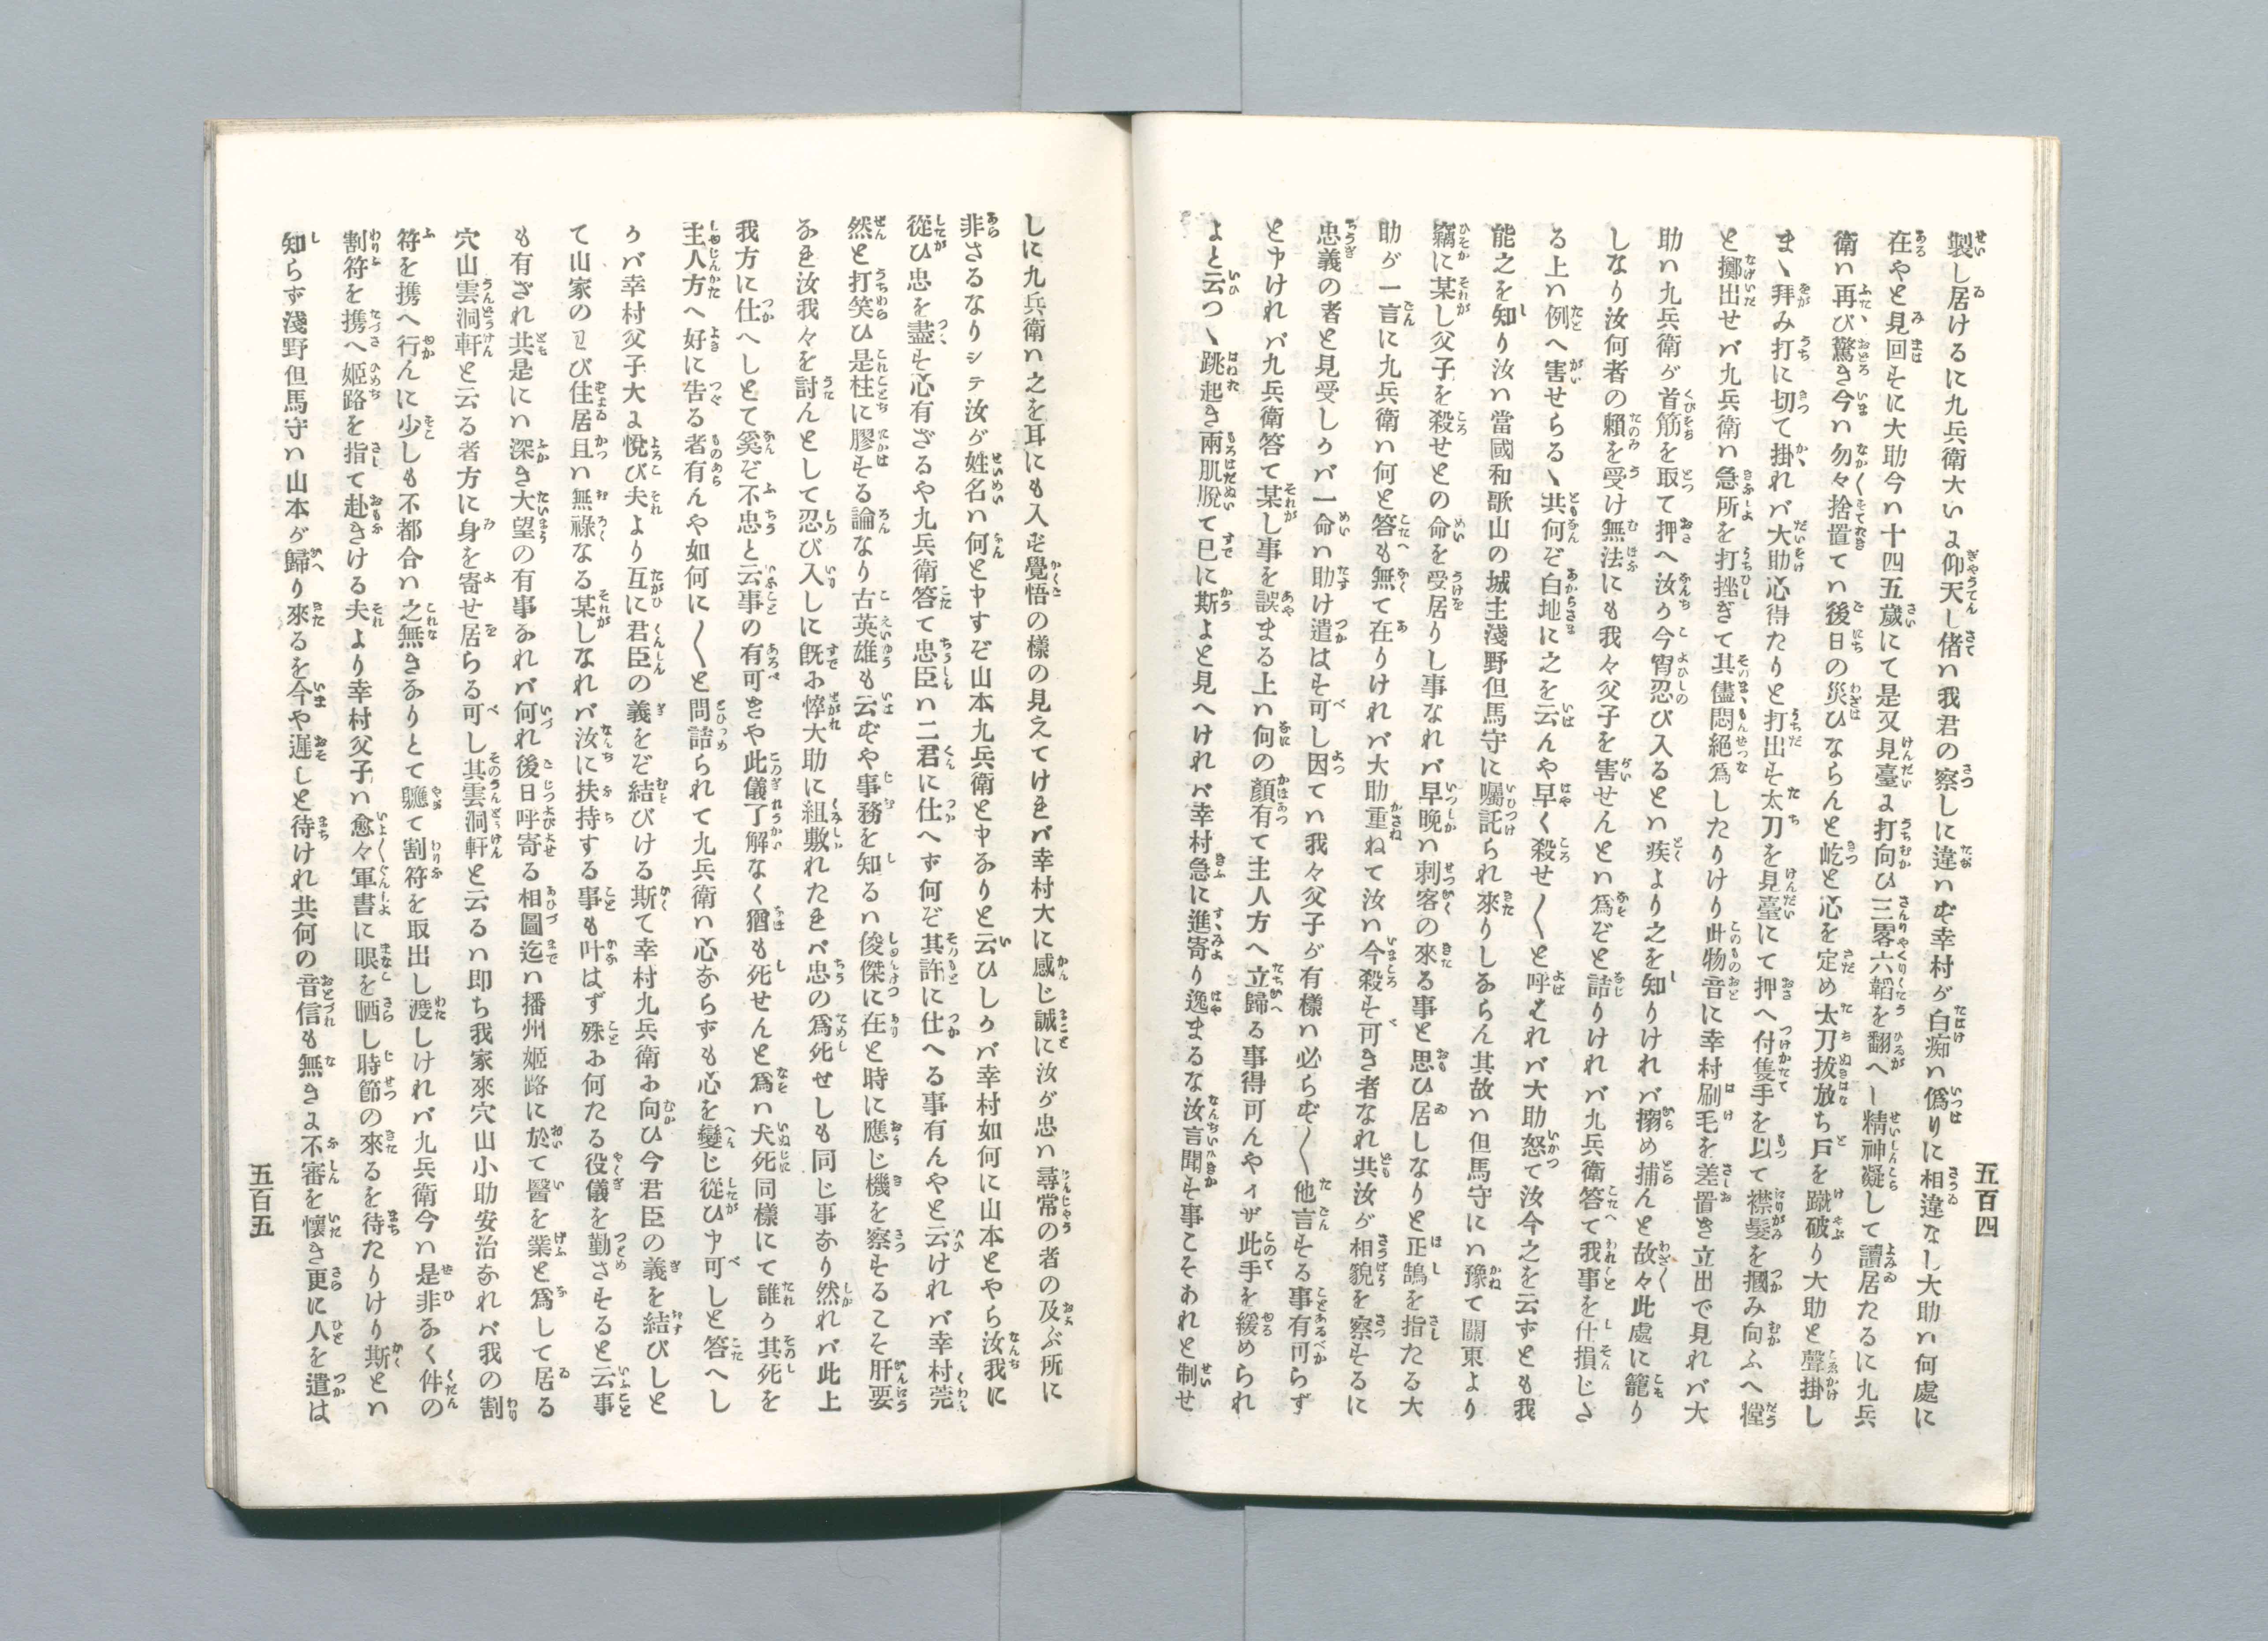 五百四
製し居けるに九兵衛大いに仰天し偖ハ我君の察しに違ハず幸村が白痴ハ僞りに相違なし大助ハ何處に
在やと見回すに大助今ハ十四五歳にて是又見臺に打向ひ三畧六韜を翻へし精神凝して讀居たるに九兵
衛ハ再び驚き今ハ勿々捨置てハ後日の災ひならんと屹と心を定め太刀拔放ち戸を蹴破り大助と聲掛し
まゝ拜み打に切て掛れバ大助心得たりと打出す太刀を見臺にて押へ付隻手を以て襟髮を摑み向ふへ摚
と擲出せバ九兵衛ハ急所を打挫ぎて其儘悶絕爲したりけり此物音に幸村刷毛を差置き立出で見れバ大
助ハ九兵衛が首筋を取て押へ汝か今宵忍び入るとハ疾より之を知りけれバ搦め捕んと故々此處に籠り
しなり汝何者の賴を受け無法にも我々父子を害せんとハ爲ぞと詰りけれバ九兵衛答て我事を仕損じさ
る上ハ例へ害せらるゝ共何ぞ白地に之を云んや早く殺せ〱と呼はれバ大助怒て汝今之を云ずとも我
能之を知り汝ハ當國和歌山の城主淺野但馬守に囑託られ來りしならん其故ハ但馬守にハ豫て關東より
竊に某し父子を殺せとの命を受居りし事なれバ早晚ハ刺客の來る事と思ひ居しなりと正鵠を指たる大
助が一言に九兵衛ハ何と答も無て在りけれバ大助重ねて汝ハ今殺す可き者なれ共汝が相貌を察するに
忠義の者と見受しかバ一命ハ助け遣はす可し因てハ我々父子が有樣ハ必らず〱他言する事有可らず
と申けれバ九兵衛答て某し事を誤まる上ハ何の顏有て主人方へ立歸る事得可んやイザ此手を緩められ
よと云つゝ跳起き兩肌脫て已に斯よと見へけれバ幸村急に進寄り逸まるな汝言聞す事こそあれと制せ
しに九兵衛ハ之を耳にも入ず覺悟の樣の見えてけれバ幸村大に感じ誠に汝が忠ハ尋常の者の及ぶ所に
非さるなりシテ汝が姓名ハ何と申すぞ山本九兵衛と申なりと云ひしかバ幸村如何に山本とやら汝我に
從ひ忠を盡す心有ざるや九兵衛答て忠臣ハ二君に仕へず何ぞ其許に仕へる事有んやと云けれバ幸村莞
然と打笑ひ是柱に膠する論なり古英雄も云ずや事務を知るハ俊傑に在と時に應じ機を察するこそ肝要
なれ汝我々を討んとして忍び入しに旣に悴大助に組敷れたれバ忠の爲死せしも同じ事なり然れバ此上
我方に仕へしとて奚ぞ不忠と云事の有可きや此儀了解なく猶も死せんと爲ハ犬死同樣にて誰か其死を
主人方へ好に告る者有んや如何に〱と問詰られて九兵衛ハ心ならずも心を變じ從ひ申可しと答へし
かバ幸村父子大に悅び夫より互に君臣の義をぞ結びける斯て幸村九兵衛に向ひ今君臣の義を結びしと
て山家の忍び住居且ハ無祿なる某しなれバ汝に扶持する事も叶はず殊に何たる役儀を勤さすると云事
も有ざれ共是にハ深き大望の有事なれバ何れ後日呼寄る相圖迄ハ播州姬路に於て醫を業と爲して居る
穴山雲洞軒と云る者方に身を寄せ居らる可し其雲洞軒と云るハ卽ち我家來穴山小助安治なれバ我の割
符を携へ行んに少しも不都合ハ之無きなりとて軈て割符を取出し渡しけれバ九兵衛今ハ是非なく件の
割符を携へ姬路を指て赴きける夫より幸村父子ハ愈々軍書に眼を晒し時節の來るを待たりけり斯とハ
知らず淺野但馬守ハ山本が歸り來るを今や遲しと待けれ共何の音信も無きに不審を懷き更に人を遣は
五百五